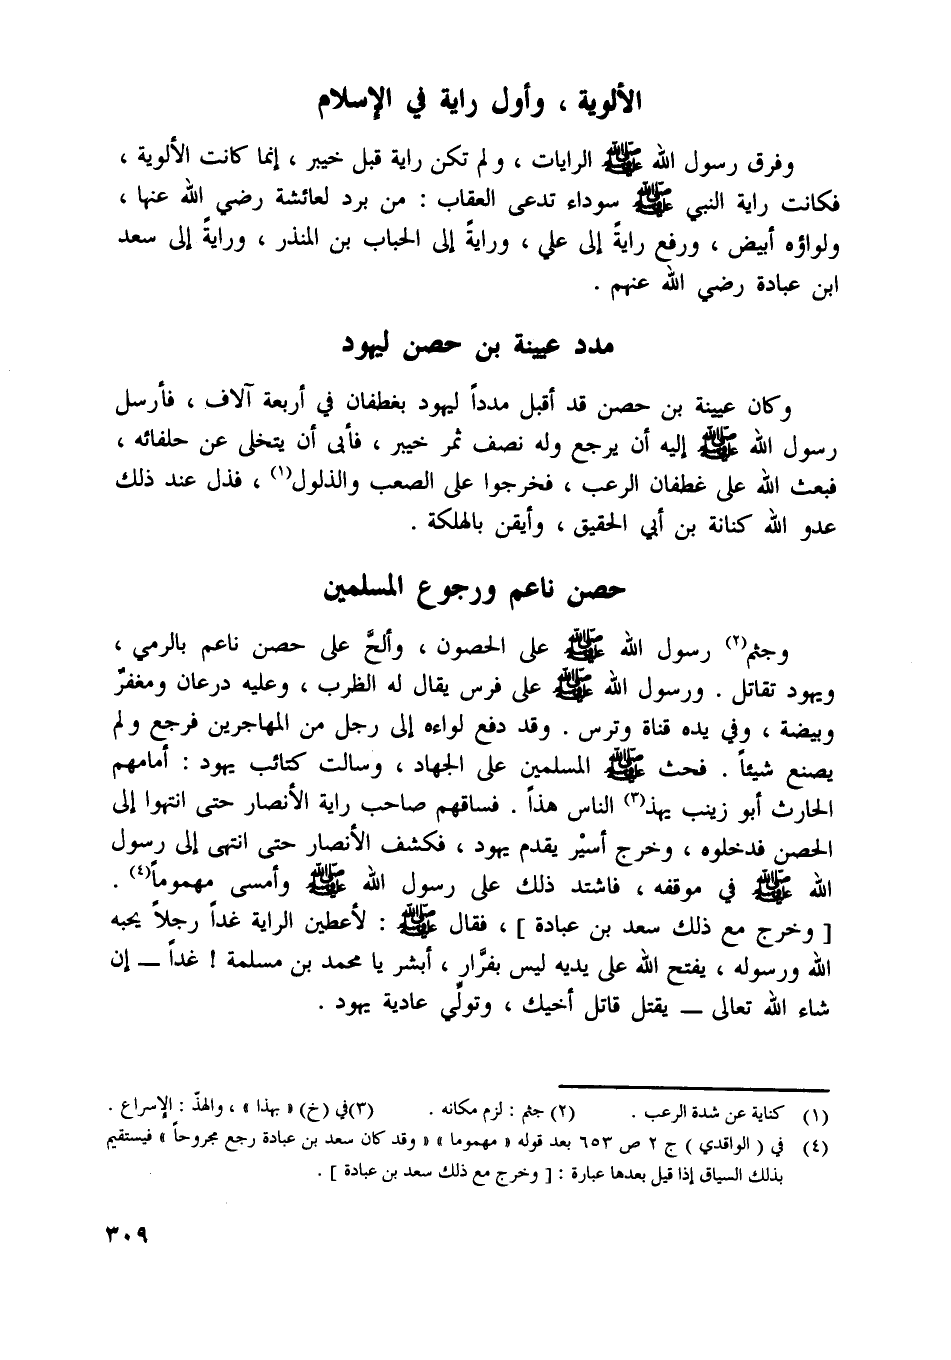 الألوية ، وأول راية في الإسلام
وفرق رسول الله ﷺ الرايات ، ولم تكن راية قبل خيبر ، إنما كانت الألوية ،
فكانت راية النبي ﷺ سوداء تدعى العقاب : من برد لعائشة رضي الله عنها ،
ولواؤه أبيض ، ورفع رايةً إلى علي ، ورايةً إلى الحباب بن المنذر ، ورايةً إلى سعد
ابن عبادة رضي الله عنهم .
مدد عيينة بن حصن ليهود
وكان عيينة بن حصن قد أقبل مدداً ليهود بغطفان في أربعة آلاف ، فأرسل
رسول الله ﷺ إليه أن يرجع وله نصف ثمر خيبر ، فأبى أن يتخلى عن حلفائه ،
فبعث الله على غطفان الرعب ، فخرجوا على الصعب والذلول(١) ، فذل عند ذلك
عدو الله كنانة بن أبي الحقيق ، وأيقن بالهلكة .
حصن ناعم ورجوع المسلمين
وجثم(٢) رسول الله ﷺ على الحصون ، وألحَّ على حصن ناعم بالرمي ،
ويهود تقاتل . ورسول الله ﷺ على فرس يقال له الظرب ، وعليه درعان ومغفرٌ
وبيضة ، وفي يده قناة وترس . وقد دفع لواءه إلى رجل من المهاجرين فرجع ولم
يصنع شيئاً . فحث ﷺ المسلمين على الجهاد ، وسالت كتائب يهود : أمامهم
الحارث أبو زينب يهذ(٣) الناس هذاً . فساقهم صاحب راية الأنصار حتى انتهوا إلى
الحصن فدخلوه ، وخرج أسيْر يقدم يهود ، فكشف الأنصار حتى انتهى إلى رسول
الله ﷺ في موقفه ، فاشتد ذلك على رسول الله ﷺ وأمسى مهموماً(٤) .
[ وخرج مع ذلك سعد بن عبادة ] ، فقال ﷺ : لأعطين الراية غداً رجلاً يحبه
الله ورسوله ، يفتح الله على يديه ليس بفرَّار ، أبشر يا محمد بن مسلمة ! غداً — إن
شاء الله تعالى — يقتل قاتل أخيك ، وتولّي عادية يهود .
(١) كناية عن شدة الرعب . (٢) جثم : لزم مكانه . (٣)في (خ) « بهذا » ، والهذّ : الإسراع .
(٤) في ( الواقدي ) ج ٢ ص ٦٥٣ بعد قوله « مهموما » « وقد كان سعد بن عبادة رجع مجروحاً » فيستقيم
بذلك السياق إذا قيل بعدها عبارة : [ وخرج مع ذلك سعد بن عبادة ] .
٣٠٩